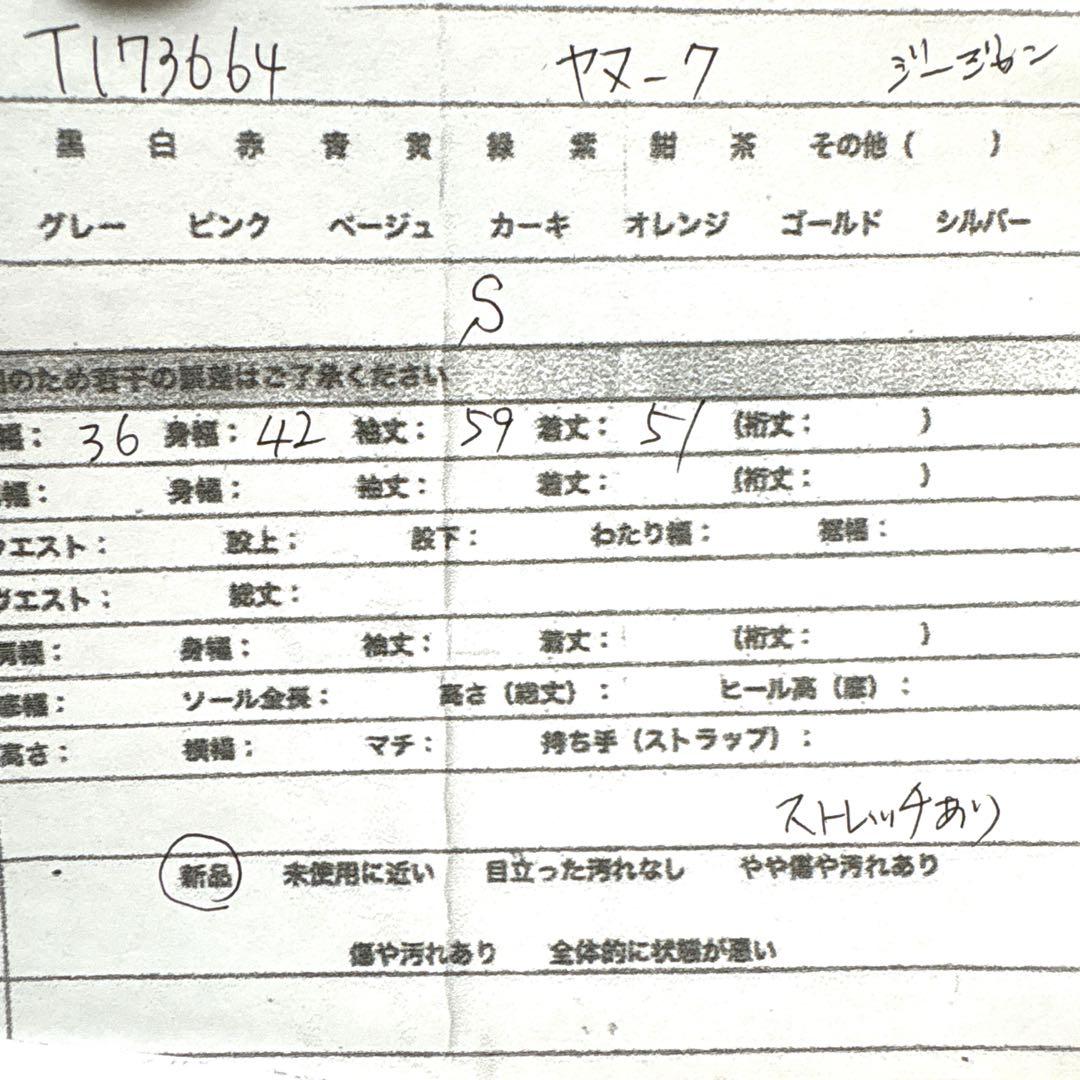 T173664 ヤヌーク ジージャン
黒 白 赤 青 黄 緑 紫 紺 茶 その他 ( )
グレー ピンク ベージュ カーキ オレンジ ゴールド シルバー
S
のため若干の誤差はご了承ください
幅： 36 身幅： 42 袖丈： 59 着丈： 51 (裄丈： )
幅： 身幅： 袖丈： 着丈： (裄丈： )
ウエスト： 股上： 股下： わたり幅： 裾幅：
ウエスト： 総丈：
肩幅： 身幅： 袖丈： 着丈： (裄丈： )
底幅： ソール全長： 高さ（総丈）： ヒール高（底）：
高さ： 横幅： マチ： 持ち手（ストラップ）：
ストレッチあり
新品 未使用に近い 目立った汚れなし やや傷や汚れあり
傷や汚れあり 全体的に状態が悪い